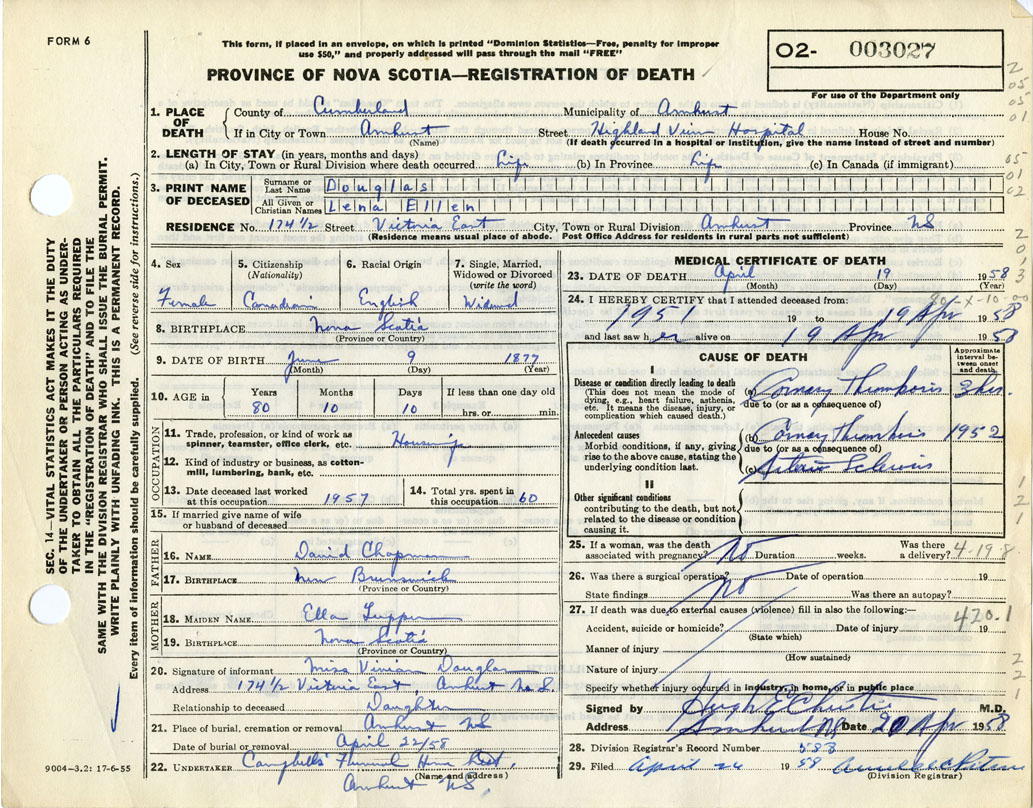 FORM 6
This form, if placed in an envelope, on which is printed "Dominion Statistics—Free, penalty for improper
use $50," and properly addressed will pass through the mail "FREE"
PROVINCE OF NOVA SCOTIA—REGISTRATION OF DEATH
02- 003027
For use of the Department only
SEC. 14—VITAL STATISTICS ACT MAKES IT THE DUTY
OF THE UNDERTAKER OR PERSON ACTING AS UNDER-
TAKER TO OBTAIN ALL THE PARTICULARS REQUIRED
IN THE "REGISTRATION OF DEATH" AND TO FILE THE
SAME WITH THE DIVISION REGISTRAR WHO SHALL ISSUE THE BURIAL PERMIT.
WRITE PLAINLY WITH UNFADING INK. THIS IS A PERMANENT RECORD.
Every item of information should be carefully supplied. (See reverse side for instructions.)
1. PLACE OF DEATH
County of Cumberland Municipality of Amherst
If in City or Town Amherst Street Highland View Hospital House No.
(Name) (If death occurred in a hospital or institution, give the name instead of street and number)
2. LENGTH OF STAY (in years, months and days)
(a) In City, Town or Rural Division where death occurred Life (b) In Province Life (c) In Canada (if immigrant)
3. PRINT NAME OF DECEASED
Surname or Last Name Douglas
All Given or Christian Names Lena Ellen
RESIDENCE No. 174 1/2 Street Victoria East City, Town or Rural Division Amherst Province NS
(Residence means usual place of abode. Post Office Address for residents in rural parts not sufficient)
4. Sex Female
5. Citizenship (Nationality) Canadian
6. Racial Origin English
7. Single, Married, Widowed or Divorced (write the word) Widowed
8. BIRTHPLACE Nova Scotia
(Province or Country)
9. DATE OF BIRTH June 9 1877
(Month) (Day) (Year)
10. AGE in Years 80 Months 10 Days 10 If less than one day old hrs. or min.
OCCUPATION
11. Trade, profession, or kind of work as spinner, teamster, office clerk, etc.
12. Kind of industry or business, as cotton-mill, lumbering, bank, etc.
13. Date deceased last worked at this occupation 1957
14. Total yrs. spent in this occupation 60
15. If married give name of wife or husband of deceased
FATHER
16. NAME David Chapman
17. BIRTHPLACE New Brunswick
(Province or Country)
MOTHER
18. MAIDEN NAME Ella Tupper
19. BIRTHPLACE Nova Scotia
(Province or Country)
20. Signature of informant Miss Vivian Douglas
Address 174 1/2 Victoria East, Amherst N.S.
Relationship to deceased Daughter
21. Place of burial, cremation or removal Amherst NS
Date of burial or removal April 22/58
22. UNDERTAKER Campbells' Funeral Home
(Name and address)
Amherst NS.
9004-3.2: 17-6-55
MEDICAL CERTIFICATE OF DEATH
23. DATE OF DEATH April 19 1958
(Month) (Day) (Year)
24. I HEREBY CERTIFY that I attended deceased from:
1951 19 to 19 Apr 1958
and last saw her alive on 19 Apr 1958
CAUSE OF DEATH
Approximate interval between onset and death
I
Disease or condition directly leading to death
(This does not mean the mode of dying, e.g., heart failure, asthenia, etc. It means the disease, injury, or complication which caused death.)
(a) Coronary Thrombosis 3 hrs.
due to (or as a consequence of)
Antecedent causes
Morbid conditions, if any, giving rise to the above cause, stating the underlying condition last.
(b) Coronary Thrombosis 1952
due to (or as a consequence of)
(c)
II
Other significant conditions
contributing to the death, but not related to the disease or condition causing it.
25. If a woman, was the death associated with pregnancy? No Duration weeks. Was there a delivery? 4-19-8
26. Was there a surgical operation? No Date of operation 19
State findings Was there an autopsy?
27. If death was due to external causes (violence) fill in also the following:— 420.1
Accident, suicide or homicide? Date of injury 19
(State which)
Manner of injury
(How sustained)
Nature of injury
Specify whether injury occurred in industry, in home, or in public place
Signed by Hugh E Christie M.D.
Address Amherst NS Date 20 Apr 1958
28. Division Registrar's Record Number 588
29. Filed April 24 1958
(Division Registrar)